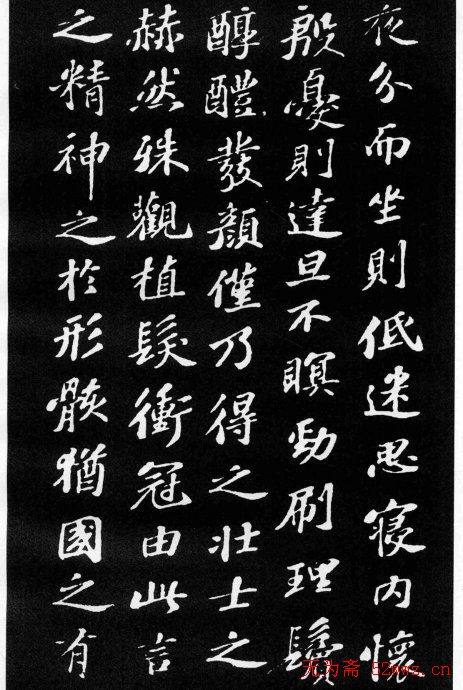 夜分而坐則低迷思寢内懷
殷憂則達旦不瞑勁刷理鬢
醇醴發顔僅乃得之壯士之
赫然殊觀植髮衝冠由此言
之精神之於形骸猶國之有
无为斋 52wwz.cn